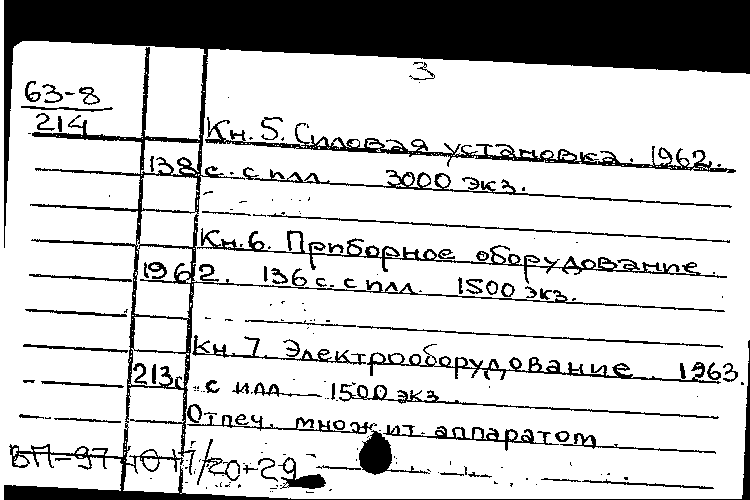 3
63-8
214
Кн. 5. Силовая установка. 1962.
138 с. с илл. 3000 экз.
Кн. 6. Приборное оборудование.
1962. 136 с. с илл. 1500 экз.
Кн. 7. Электрооборудование. 1963.
213с. с илл. 1500 экз.
Отпеч. множит. аппаратом